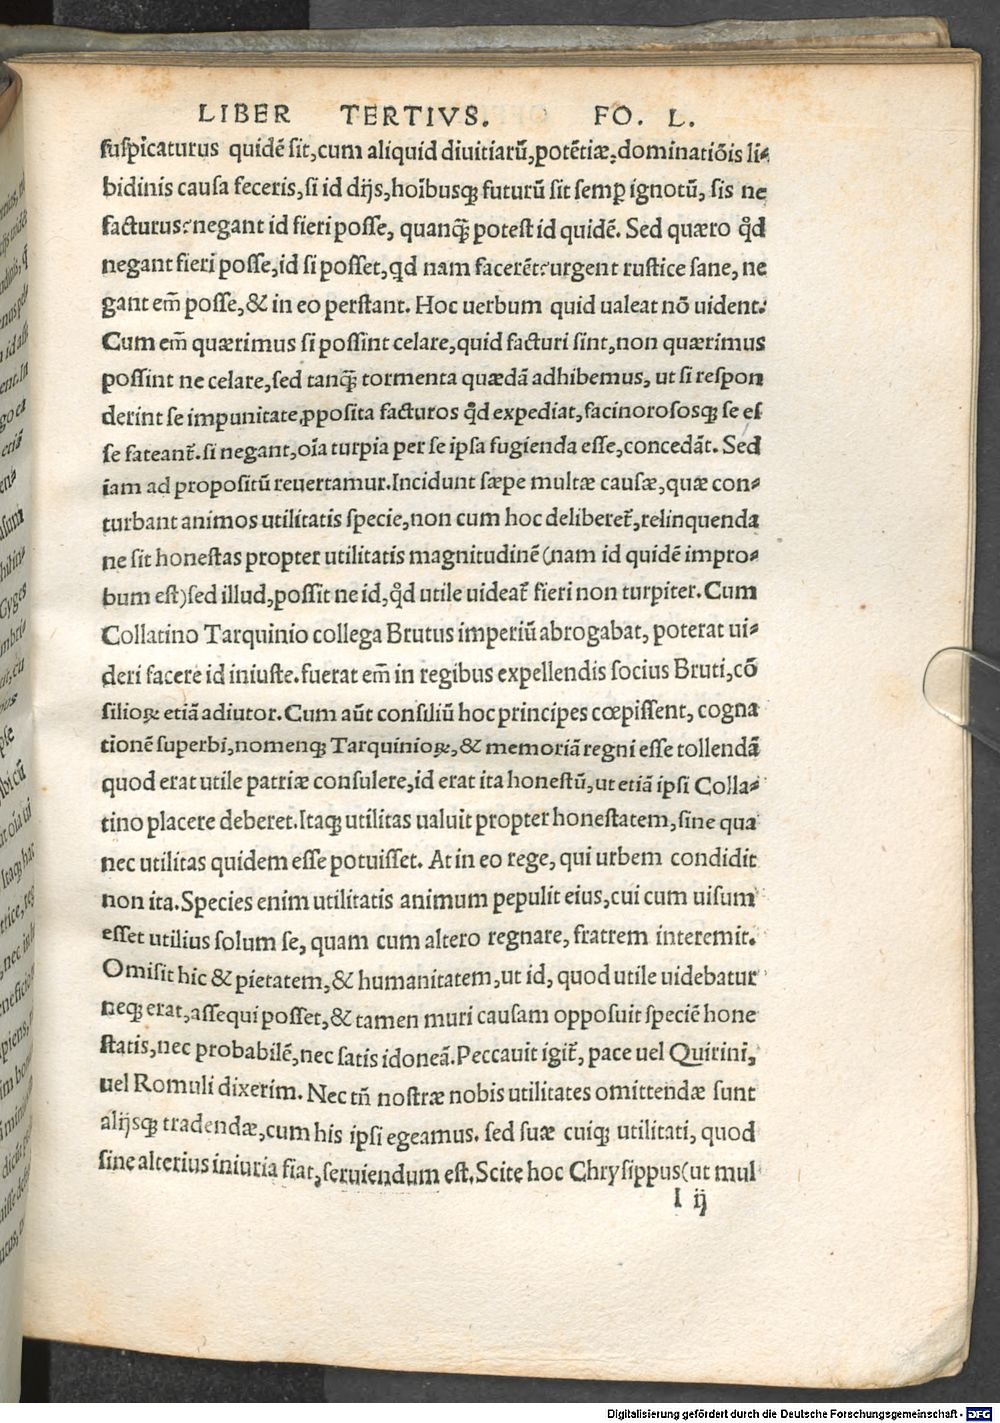 LIBER TERTIVS. FO. L.
suspicaturus quidē sit,cum aliquid diuitiarū,potētiæ,dominatiōis li⸗
bidinis causa feceris,si id dijs,hoībusꝗ futurū sit semꝑ ignotū, sis ne
facturus:negant id fieri posse, quanꝗ̄ potest id quidē. Sed quæro qd̓
negant fieri posse,id si posset,qd nam facerēt:urgent rustice sane, ne
gant em̄ posse,& in eo perstant. Hoc uerbum quid ualeat nō uident:
Cum em̄ quærimus si possint celare,quid facturi sint,non quærimus
possint ne celare,sed tanꝗ̄ tormenta quædā adhibemus, ut si respon
derint se impunitate ꝓposita facturos qd̓ expediat,facinorososꝗ se es
se fateant᷑.si negant,oīa turpia per se ipsa fugienda esse,concedāt. Sed
iam ad propositū reuertamur.Incidunt sæpe multæ causæ,quæ con⸗
turbant animos utilitatis specie,non cum hoc deliberet᷑,relinquenda
ne sit honestas propter utilitatis magnitudinē(nam id quidē impro⸗
bum est)sed illud,possit ne id,qd̓ utile uideat᷑ fieri non turpiter.Cum
Collatino Tarquinio collega Brutus imperiū abrogabat, poterat ui⸗
deri facere id iniuste.fuerat em̄ in regibus expellendis socius Bruti,cō
silioꝝ etiā adiutor.Cum aūt consiliū hoc principes cœpissent, cogna
tionē superbi,nomenꝗ Tarquinioꝝ,& memoriā regni esse tollendā
quod erat utile patriæ consulere,id erat ita honestū,ut etiā ipsi Colla⸗
tino placere deberet.Itaꝗ utilitas ualuit propter honestatem,sine qua
nec utilitas quidem esse potuisset. At in eo rege, qui urbem condidit
non ita.Species enim utilitatis animum pepulit eius,cui cum uisum
esset utilius solum se, quam cum altero regnare, fratrem interemit.
Omisit hic & pietatem,& humanitatem,ut id, quod utile uidebatur
neꝗ erat,assequi posset,& tamen muri causam opposuit speciē hone
statis,nec probabilē,nec satis idoneā.Peccauit igit᷑, pace uel Quirini,
uel Romuli dixerim. Nec tn̄ nostræ nobis utilitates omittendæ sunt
alijsꝗ tradendæ,cum his ipsi egeamus. sed suæ cuiꝗ utilitati, quod
sine alterius iniuria fiat,seruiendum est.Scite hoc Chrysippus(ut mul
I ij
Digitalisierung gefördert durch die Deutsche Forschungsgemeinschaft - DFG